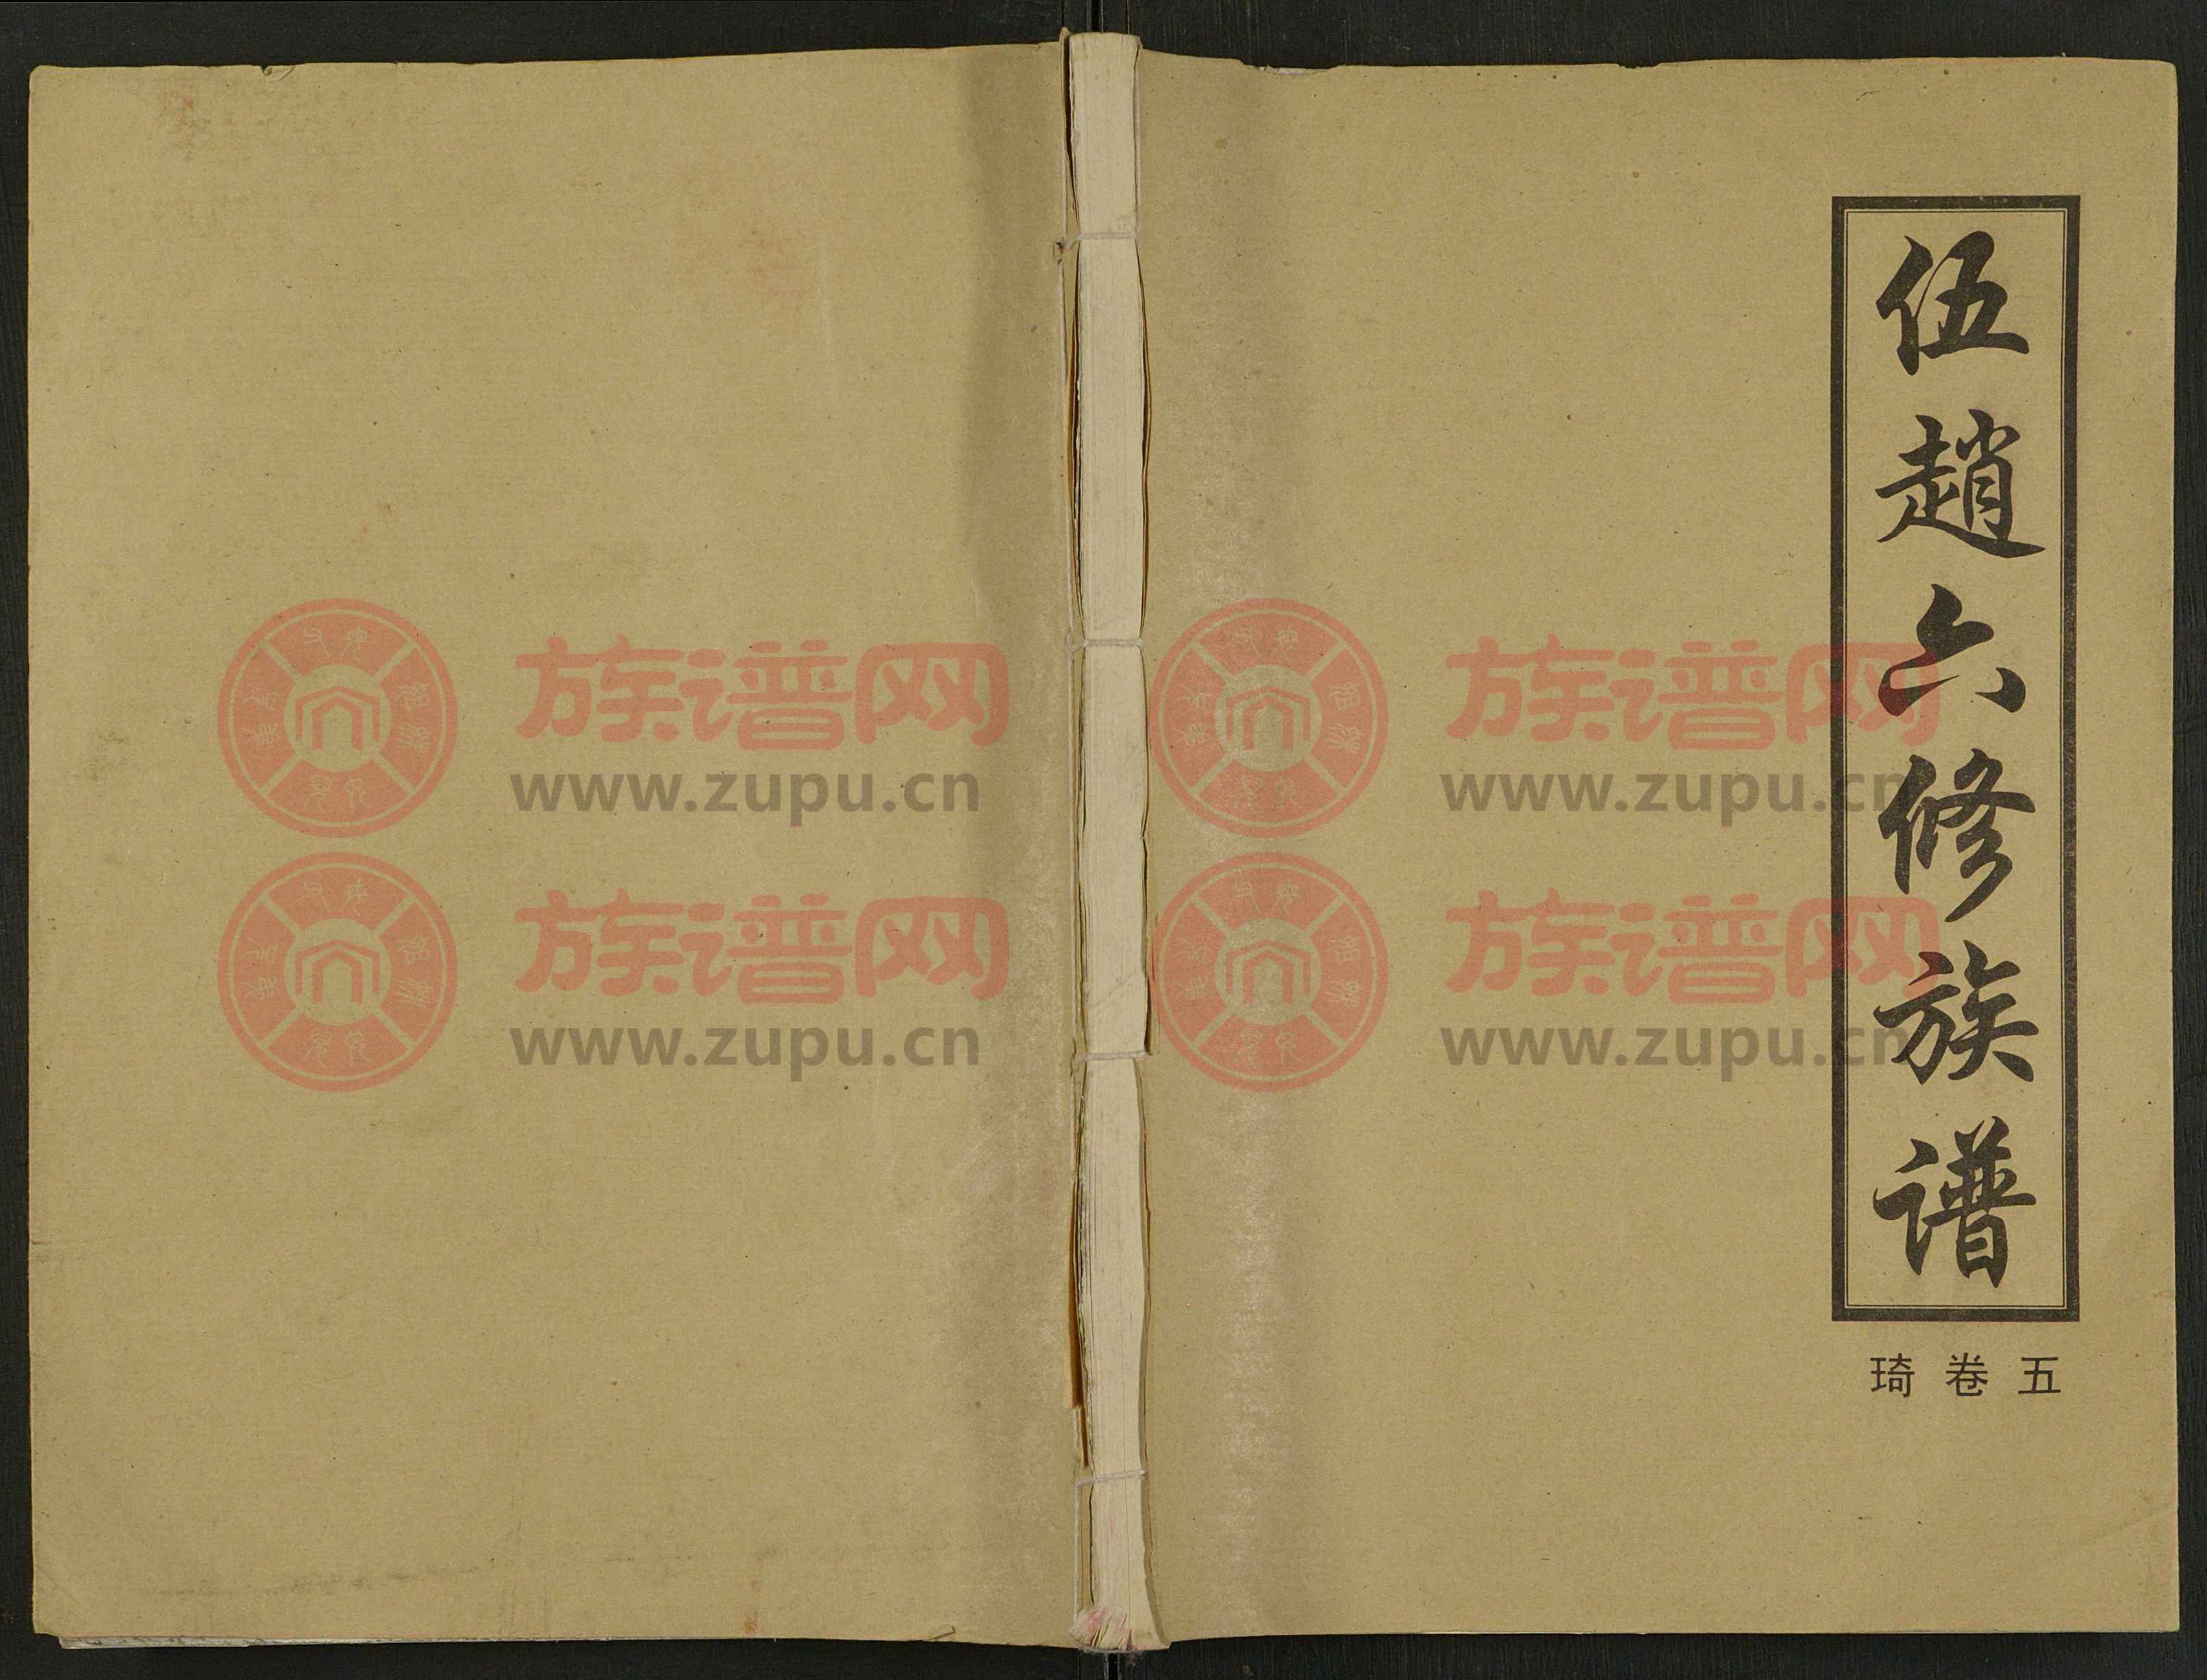 伍趙六修族谱
琦卷五
族谱网
www.zupu.cn
族谱网
www.zupu.cn
族谱网
www.zupu.cn
族谱网
www.zupu.cn